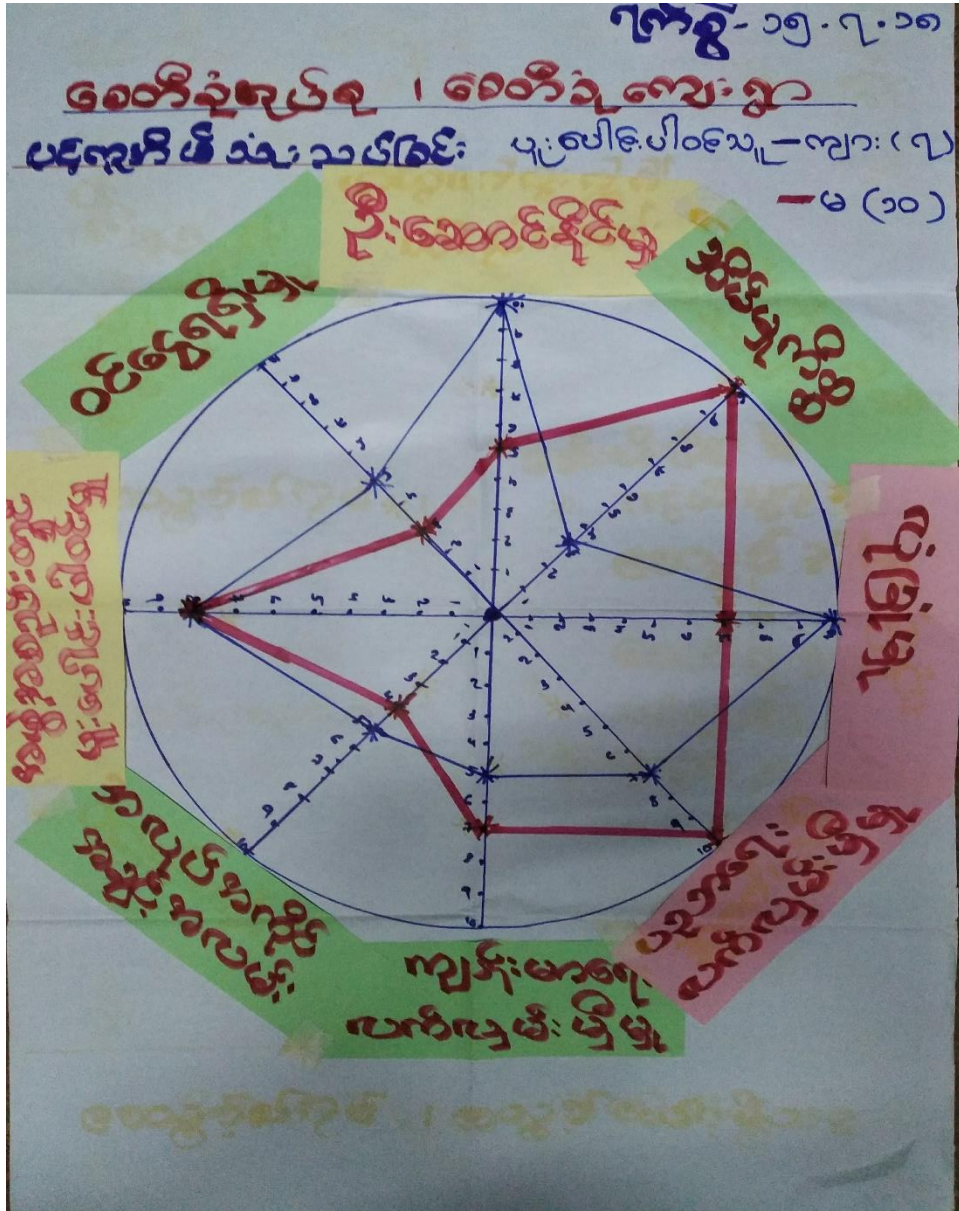 ရက်စွဲ - ၁၅.၇.၁၈
စေတီခုံအုပ်စု ၊ စေတီခုံကျေးရွာ
ပင့်ကူအိမ်သုံးသပ်ခြင်း ပူးပေါင်းပါဝင်သူ - ကျား (၇)
- မ (၁၀)
ဦးဆောင်နိုင်မှု
အိမ်မှုကိစ္စ
လုံခြုံမှု
ပညာရေး
လက်လှမ်းမှီမှု
ကျန်းမာရေး
လက်လှမ်းမှီမှု
အလုပ်အကိုင်
အခွင့်အလမ်း
ပူးပေါင်းပါဝင်မှု
ဝင်ငွေရရှိမှု